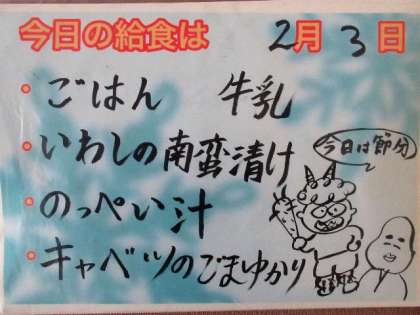 今日の給食は 2月 3日
・ごはん 牛乳
・いわしの南蛮漬け
今日は節分
・のっぺい汁
・キャベツのごまゆかり